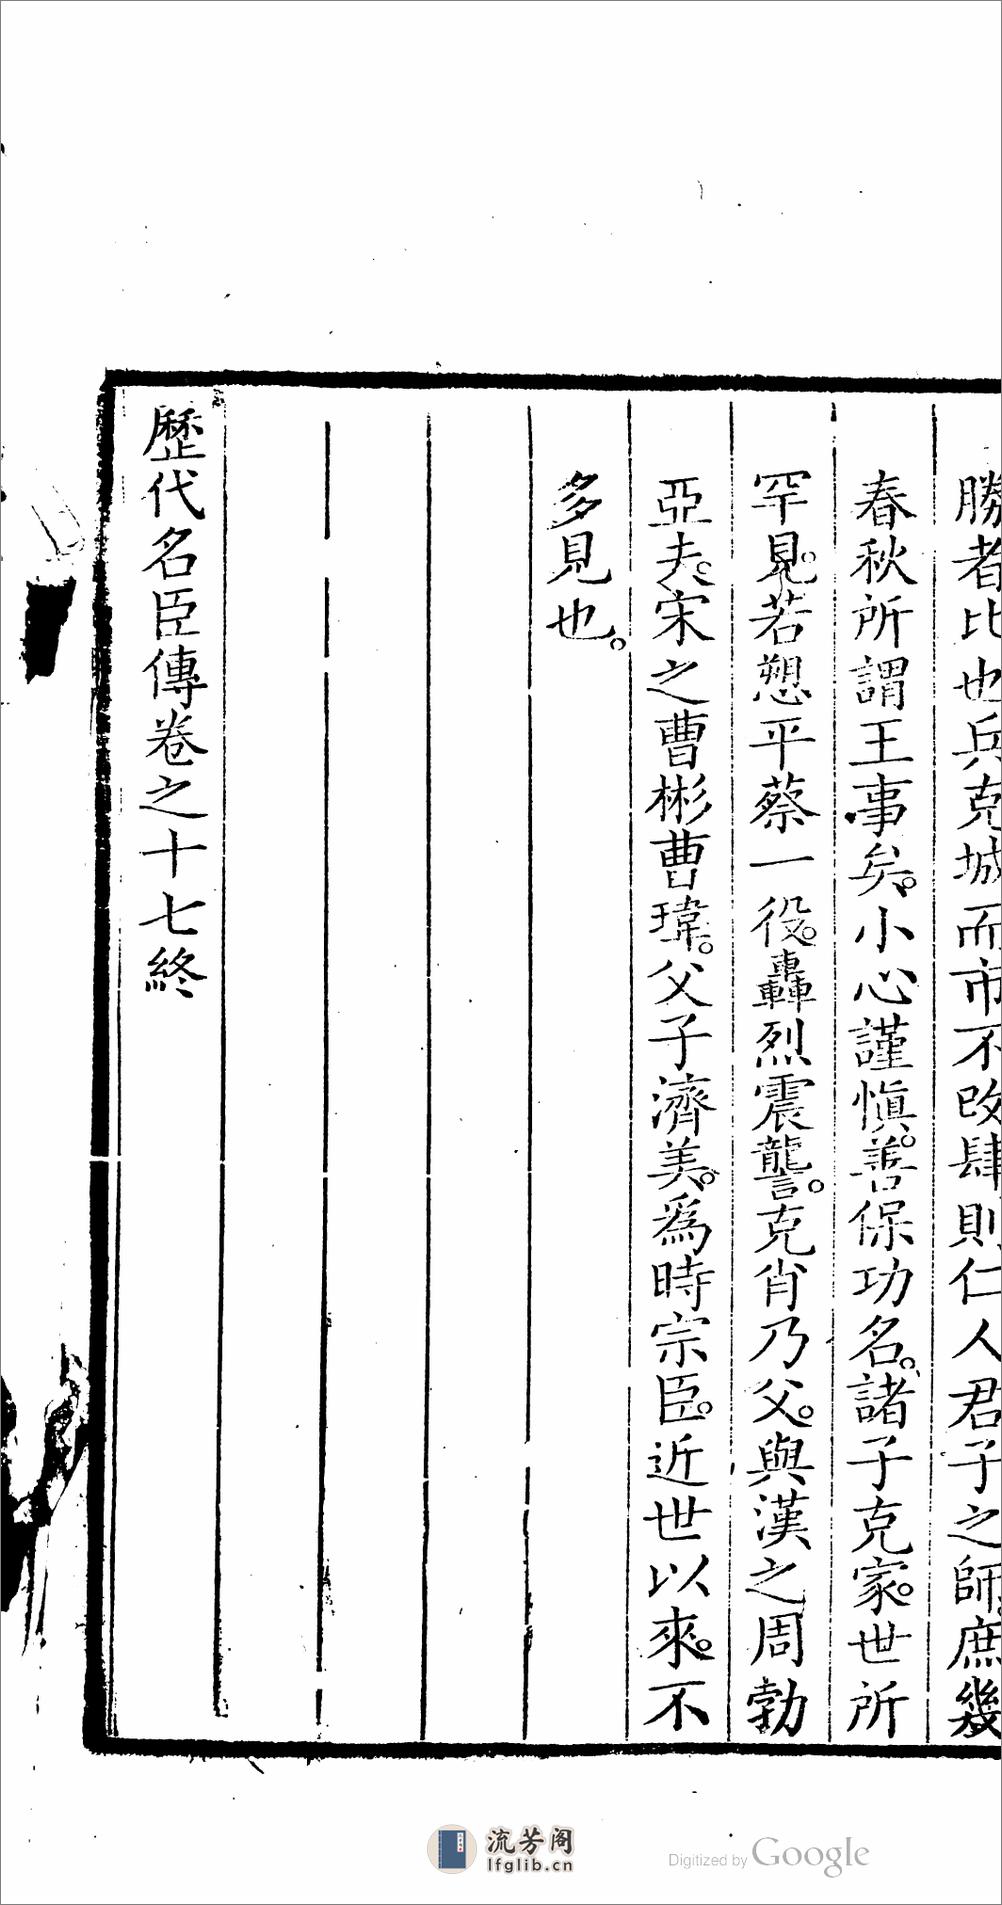 勝者比也兵克城而市不改肆則仁人君子之師庶幾
春秋所謂王事矣。小心謹慎。善保功名。諸子克家。世所
罕見。若愬平蔡一役。轟烈震讋。克肖乃父。與漢之周勃
亞夫。宋之曹彬曹瑋。父子濟美。爲時宗臣。近世以來。不
多見也。
歷代名臣傳卷之十七終
流芳阁
lfglib.cn
Digitized by Google